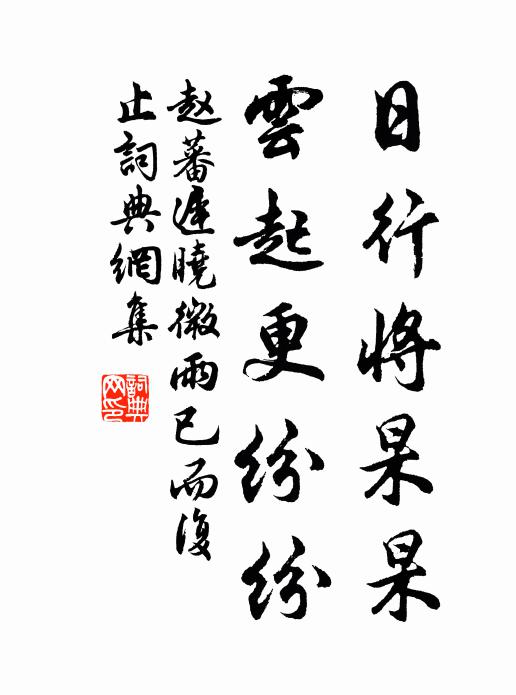 日行将杲杲
雲起更紛紛
赵蕃遲曉微雨已而復
止詞典網集
詞典
网印